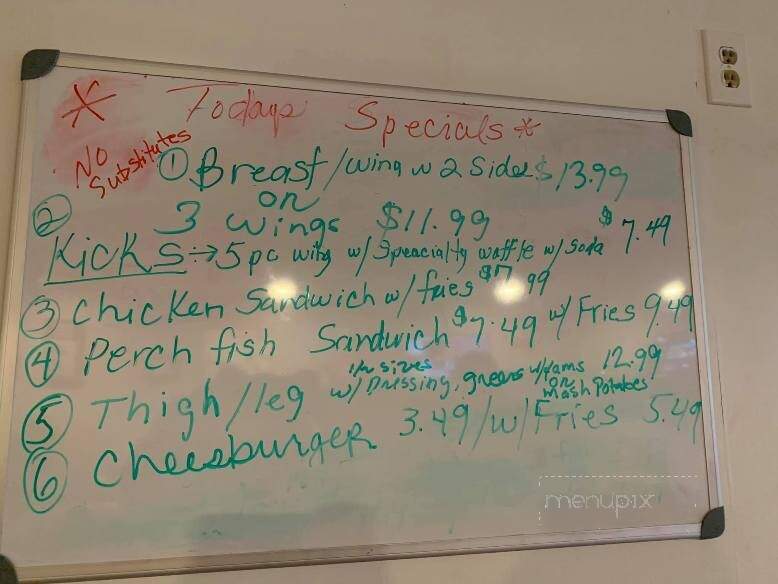 * Todays Specials *
No Substitutes
① Breast/wing w 2 Sides $13.99
or
② 3 wings $11.99
Kicks → 5 pc wing w/ Speacialty waffle w/ Soda $7.49
③ Chicken Sandwich w/ fries $7.99
④ Perch fish Sandwich $7.49 w/ Fries 9.49
⑤ Thigh/leg w/ Dressing, greens w/yams 12.99
or
mash Potatoes
⑥ Cheesburger 3.49/w/Fries 5.49
menupix